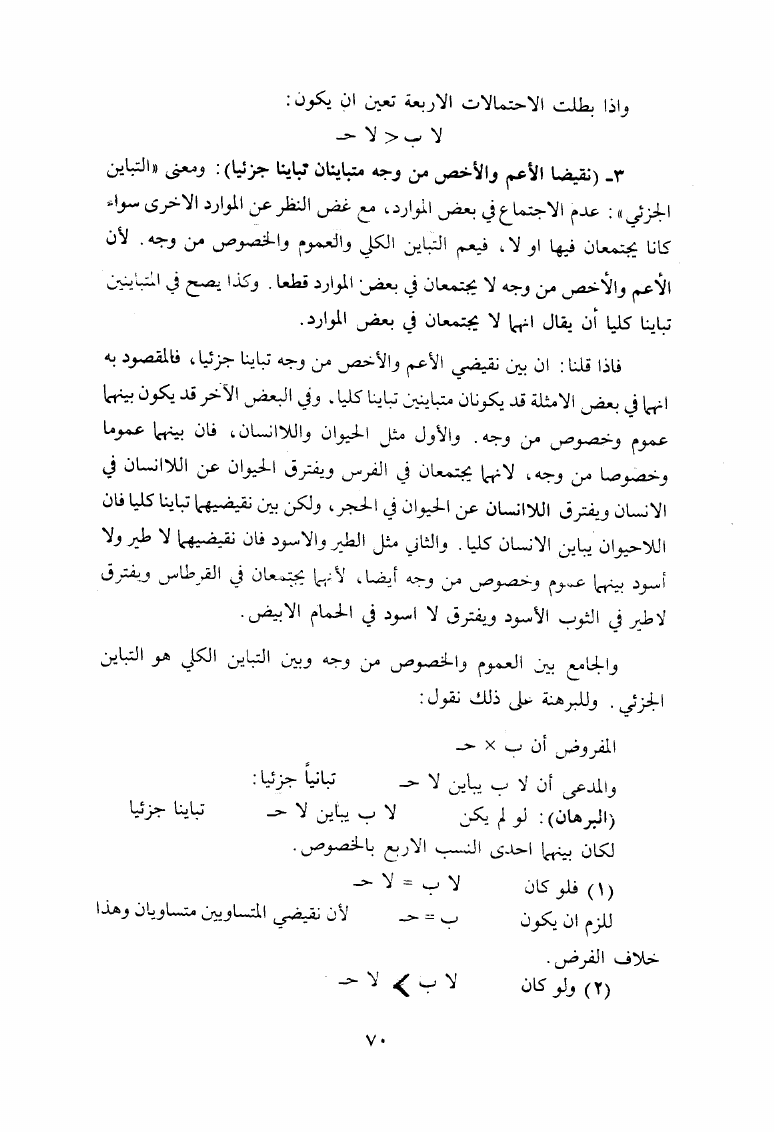 واذا بطلت الاحتمالات الاربعة تعين ان يكون:
لا ب < لا حـ
٣ـ (نقيضا الأعم والأخص من وجه متباينان تباينا جزئيا): ومعنى «التباين
الجزئي»: عدم الاجتماع في بعض الموارد، مع غض النظر عن الموارد الاخرى سواء
كانا يجتمعان فيها او لا، فيعم التباين الكلي والعموم والخصوص من وجه. لأن
الأعم والأخص من وجه لا يجتمعان في بعض الموارد قطعا. وكذا يصح في المتباينين
تباينا كليا أن يقال انهما لا يجتمعان في بعض الموارد.
فاذا قلنا: ان بين نقيضي الأعم والأخص من وجه تباينا جزئيا، فالمقصود به
انهما في بعض الامثلة قد يكونان متباينين تباينا كليا. وفي البعض الآخر قد يكون بينهما
عموم وخصوص من وجه. والأول مثل الحيوان واللاانسان، فان بينهما عموما
وخصوصا من وجه، لانهما يجتمعان في الفرس ويفترق الحيوان عن اللاانسان في
الانسان ويفترق اللاانسان عن الحيوان في الحجر، ولكن بين نقيضيهما تباينا كليا فان
اللاحيوان يباين الانسان كليا. والثاني مثل الطير والاسود فان نقيضيهما لا طير ولا
أسود بينهما عموم وخصوص من وجه أيضا، لأنهما يجتمعان في القرطاس ويفترق
لاطير في الثوب الأسود ويفترق لا اسود في الحمام الابيض.
والجامع بين العموم والخصوص من وجه وبين التباين الكلي هو التباين
الجزئي. وللبرهنة على ذلك نقول:
المفروض أن ب × حـ
والمدعى أن لا ب يباين لا حـ تبانياً جزئيا:
(البرهان): لو لم يكن لا ب يباين لا حـ تباينا جزئيا
لكان بينهما احدى النسب الاربع بالخصوص.
(١) فلو كان لا ب = لا حـ
للزم ان يكون ب = حـ لأن نقيضي المتساويين متساويان وهذا
خلاف الفرض.
(٢) ولو كان لا ب > لا حـ
٧٠